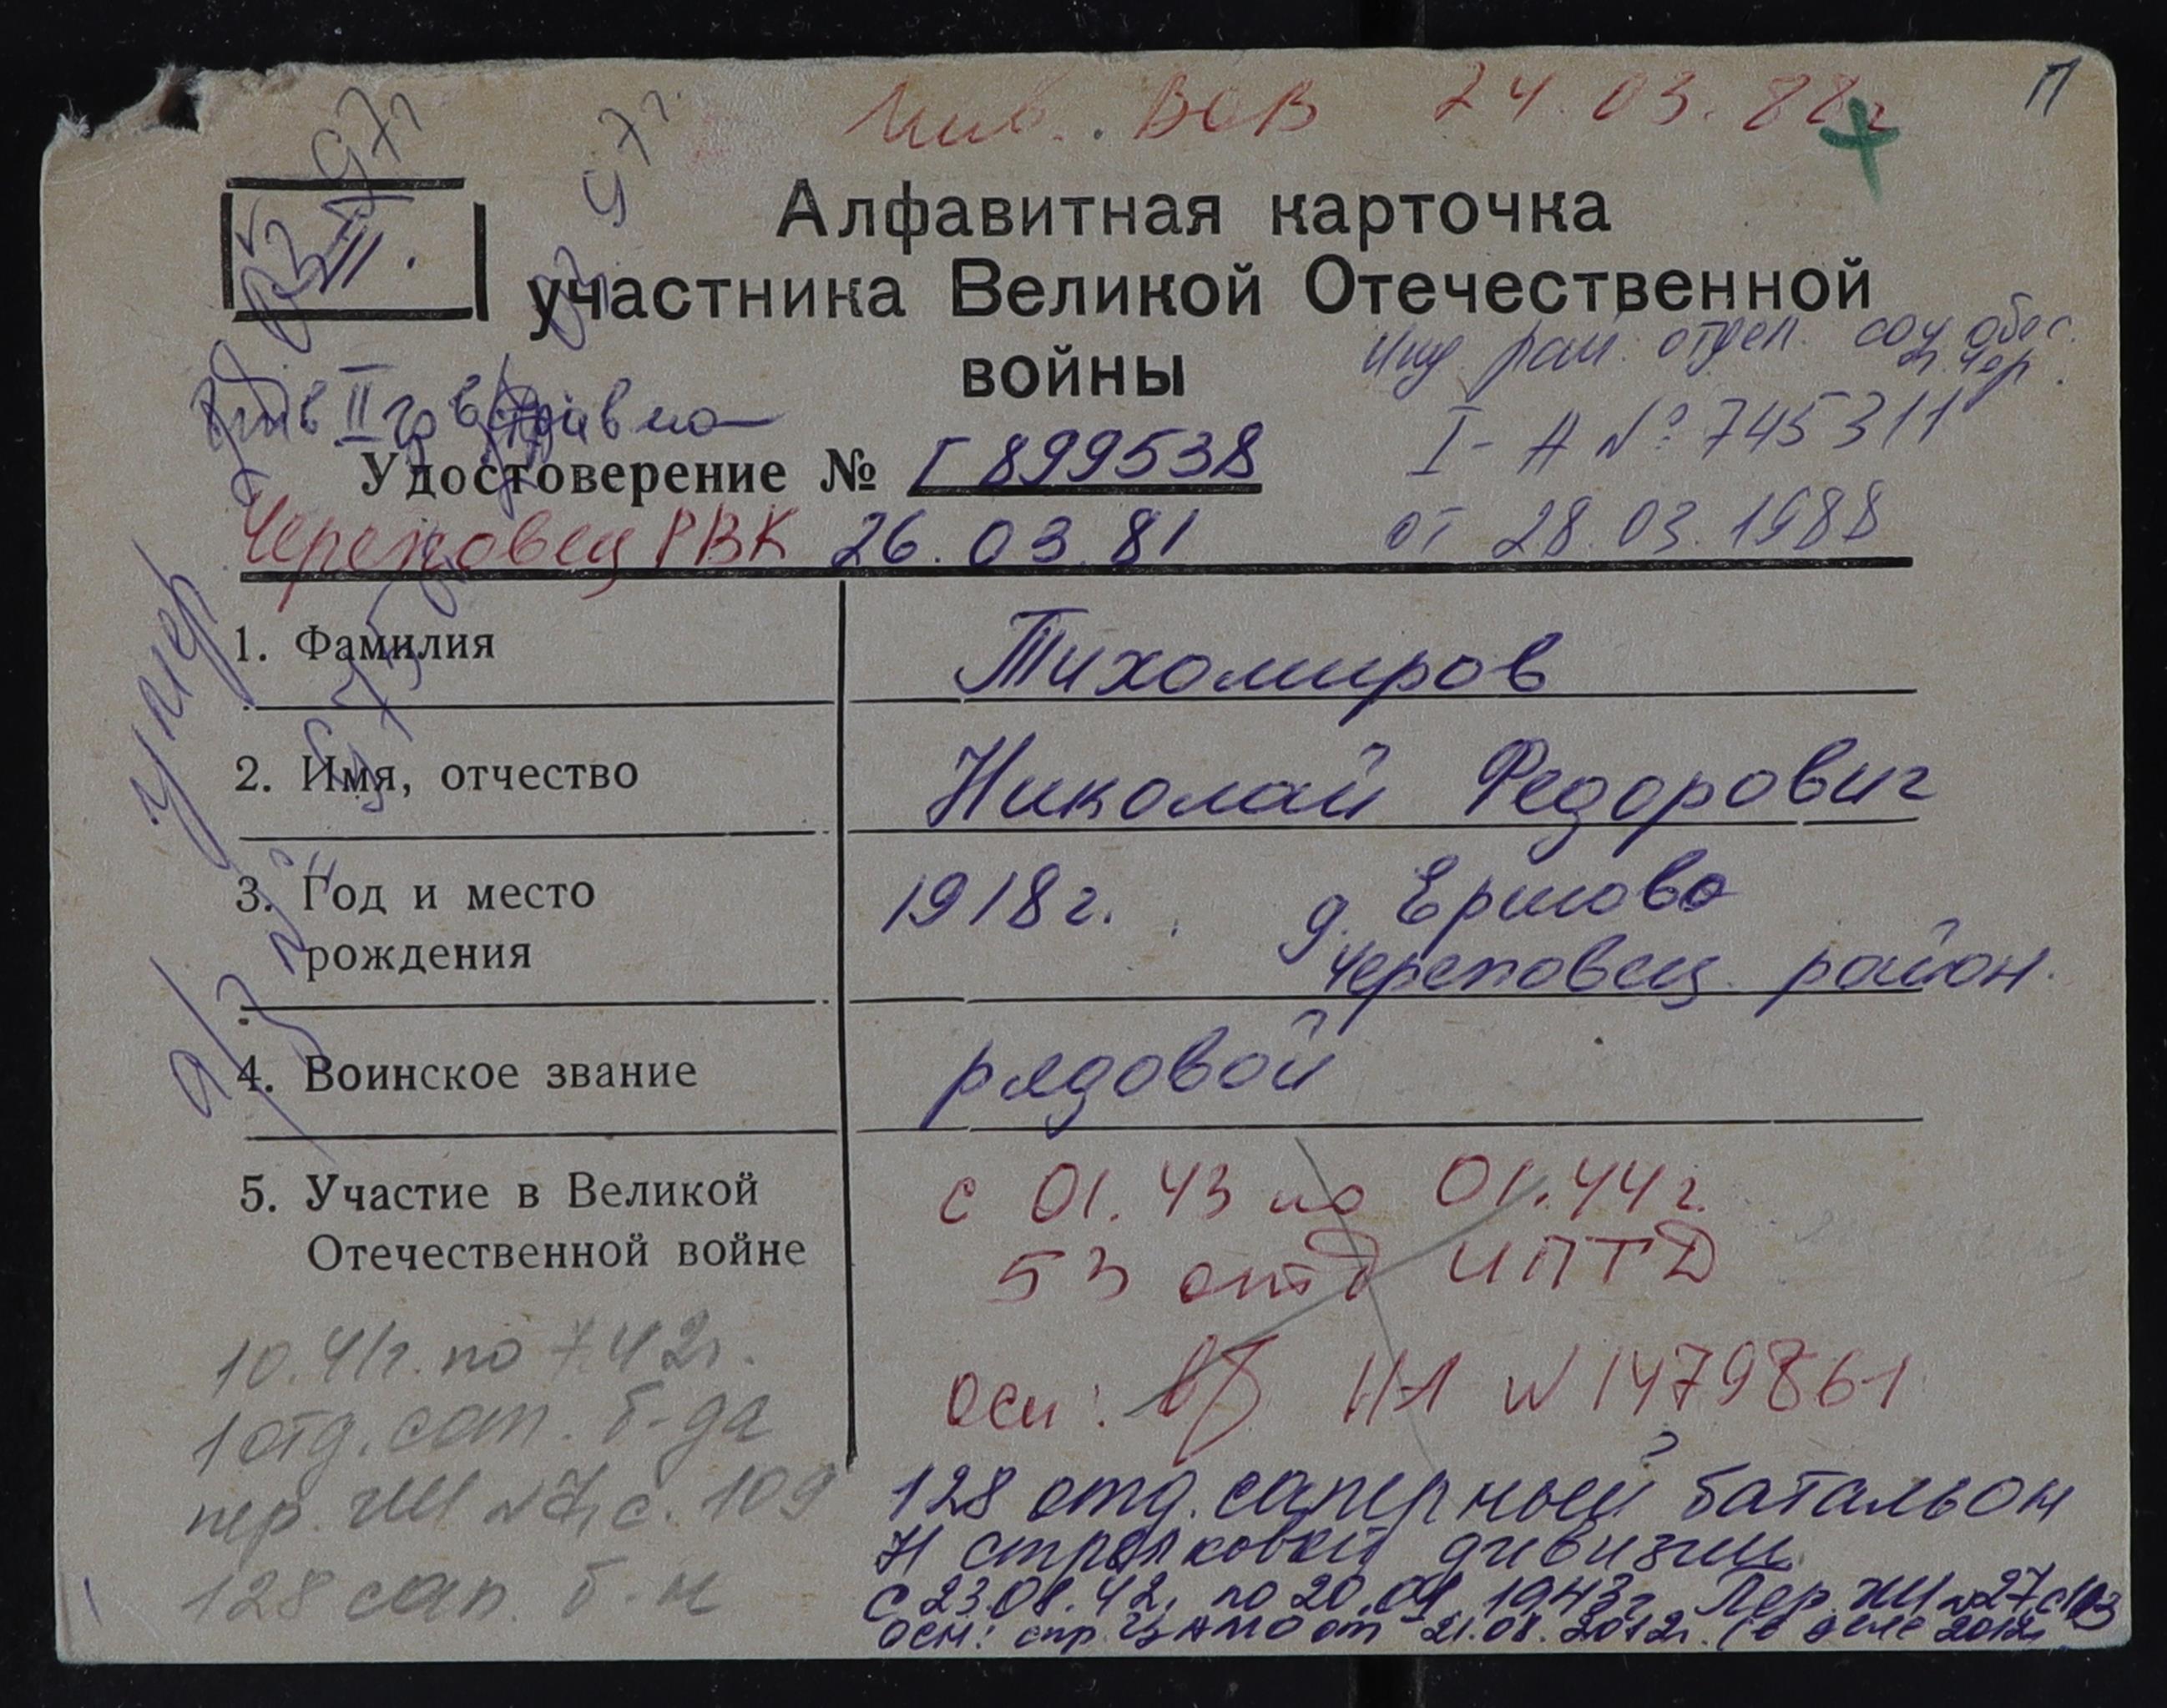 Инв. ВОВ 24.03.88г
П
97г
97г.
II.
Алфавитная карточка
участника Великой Отечественной
войны
рай. отдел. соц. обес.
п. Чер.
I-А № 745311
от 28.03.1988
II гр
Удостоверение № Г 899538
Череповец РВК 26.03.81
умер
1. Фамилия Тихомиров
2. Имя, отчество Николай Федорович
3. Год и место рождения 1918г. д. Ершово
Череповец. район.
4. Воинское звание рядовой
5. Участие в Великой Отечественной войне с 01.43 по 01.44г.
53 отд ИПТД
осн: в/б НЛ № 1479861
10.41г. по 7.42г.
1 отд. сап. б-да
пер. УШ №7, с. 109
128 сап. б-н
128 отд. саперный батальон
71 стрелковой дивизии
с 23.08.42. по 20.01 1943г Пер. №27, с103
осн: спр. ЦАМО от 21.08.2012г. (в деле 2012г